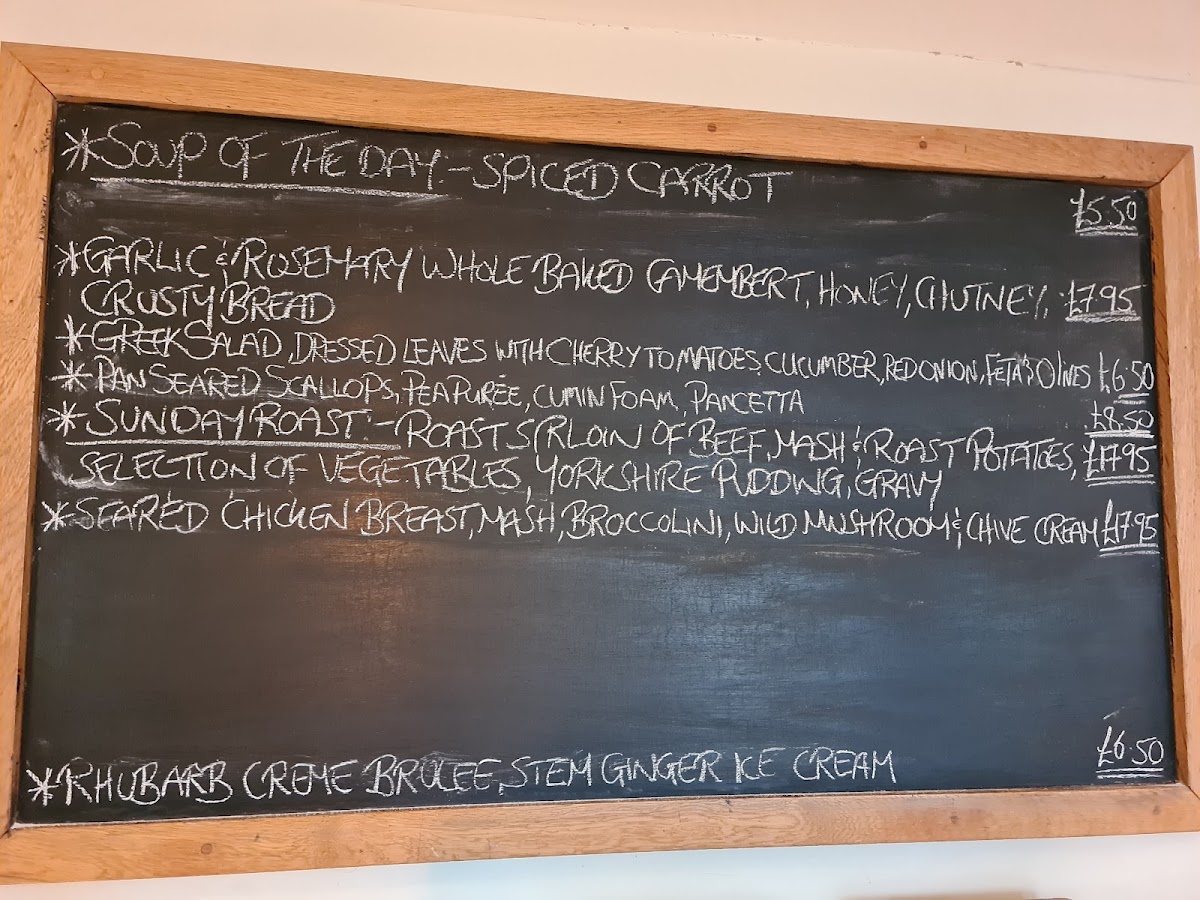 *SOUP OF THE DAY:- SPICED CARROT £5.50
*GARLIC & ROSEMARY WHOLE BAKED CAMEMBERT, HONEY, CHUTNEY, £7.95
CRUSTY BREAD
*GREEK SALAD, DRESSED LEAVES WITH CHERRY TOMATOES, CUCUMBER, RED ONION, FETA & OLIVES £6.50
*PAN SEARED SCALLOPS, PEA PURÉE, CUMIN FOAM, PANCETTA £8.50
*SUNDAY ROAST:- ROAST SIRLOIN OF BEEF, MASH & ROAST POTATOES, £17.95
SELECTION OF VEGETABLES, YORKSHIRE PUDDING, GRAVY
*SEARED CHICKEN BREAST, MASH, BROCCOLINI, WILD MUSHROOM & CHIVE CREAM £17.95
*RHUBARB CREME BRULEE, STEM GINGER ICE CREAM £6.50